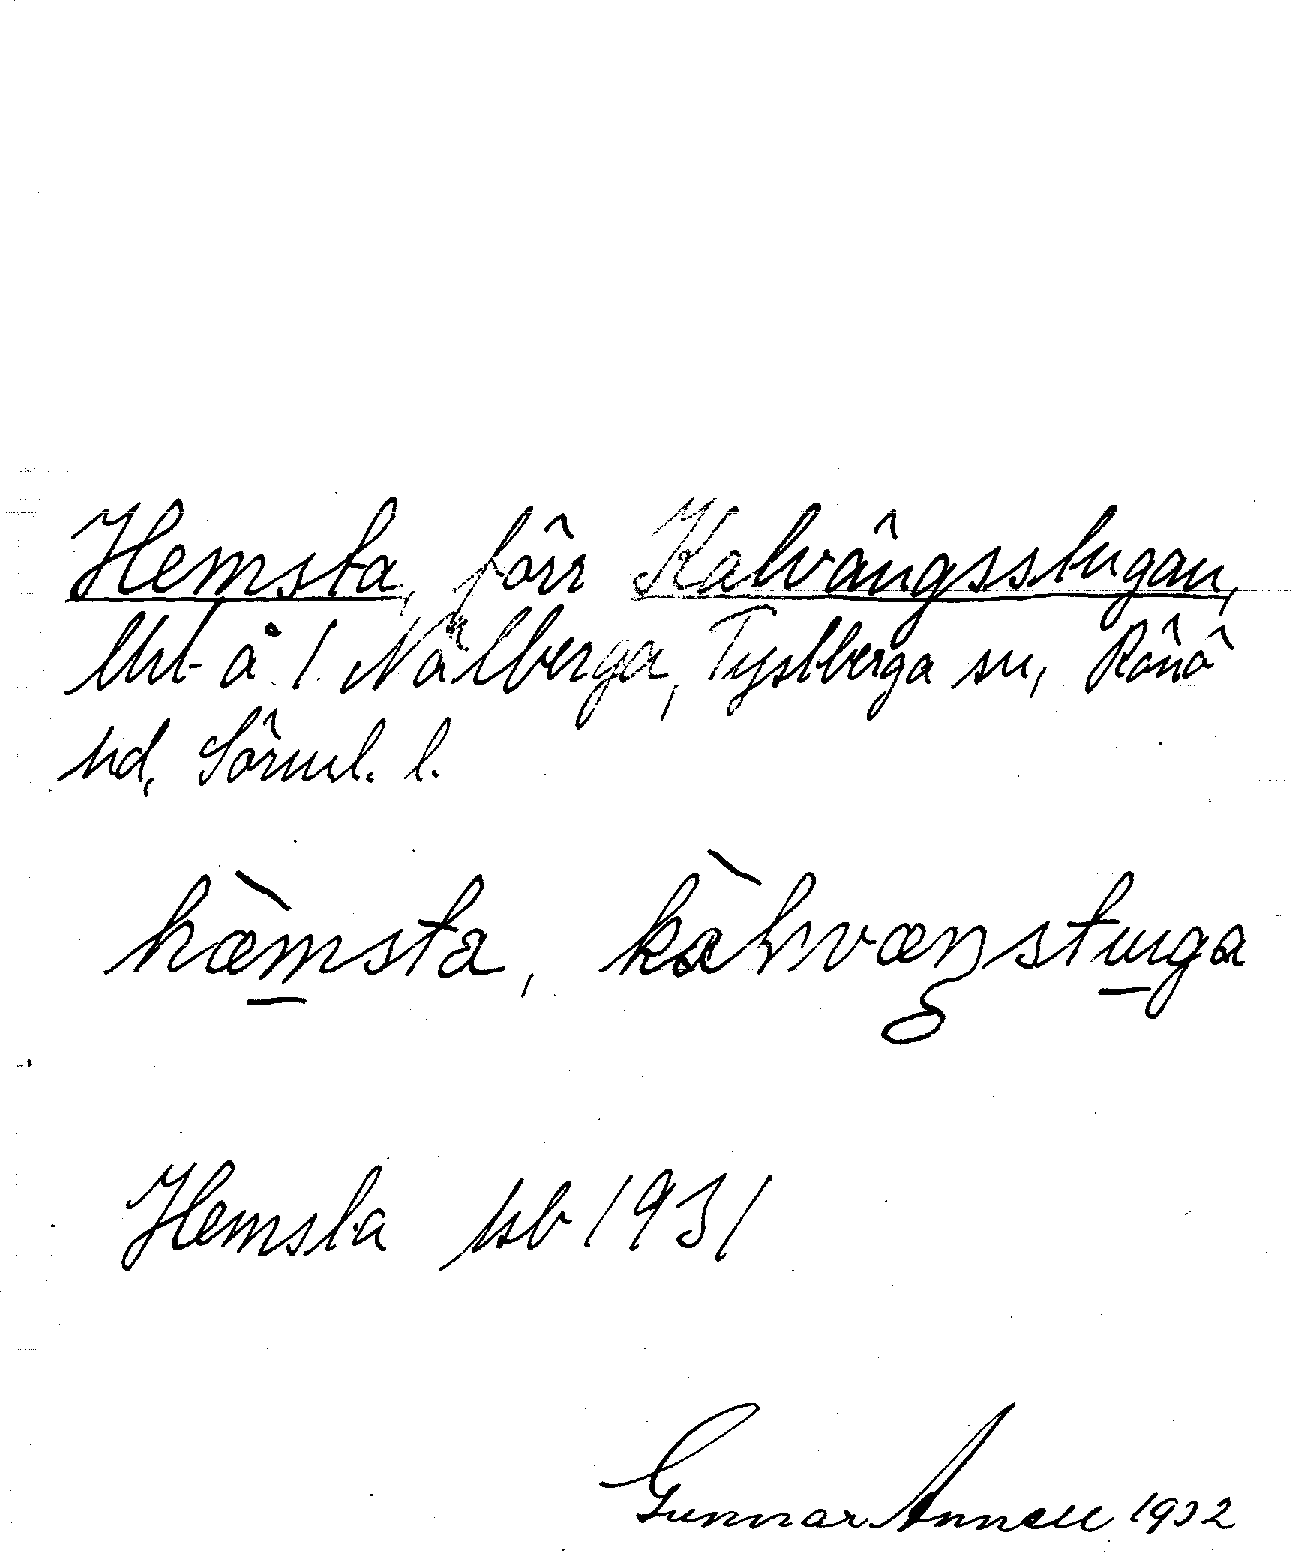 Hemsta, förr Kalvängsstugan,
lht å 1 Nälberga, Tystberga sn, Rönö
hd, Söderml. l.
hæ̀msta, kàlvæŋstuga
Hemsta hsb 1931
Gunnar Annell 1932